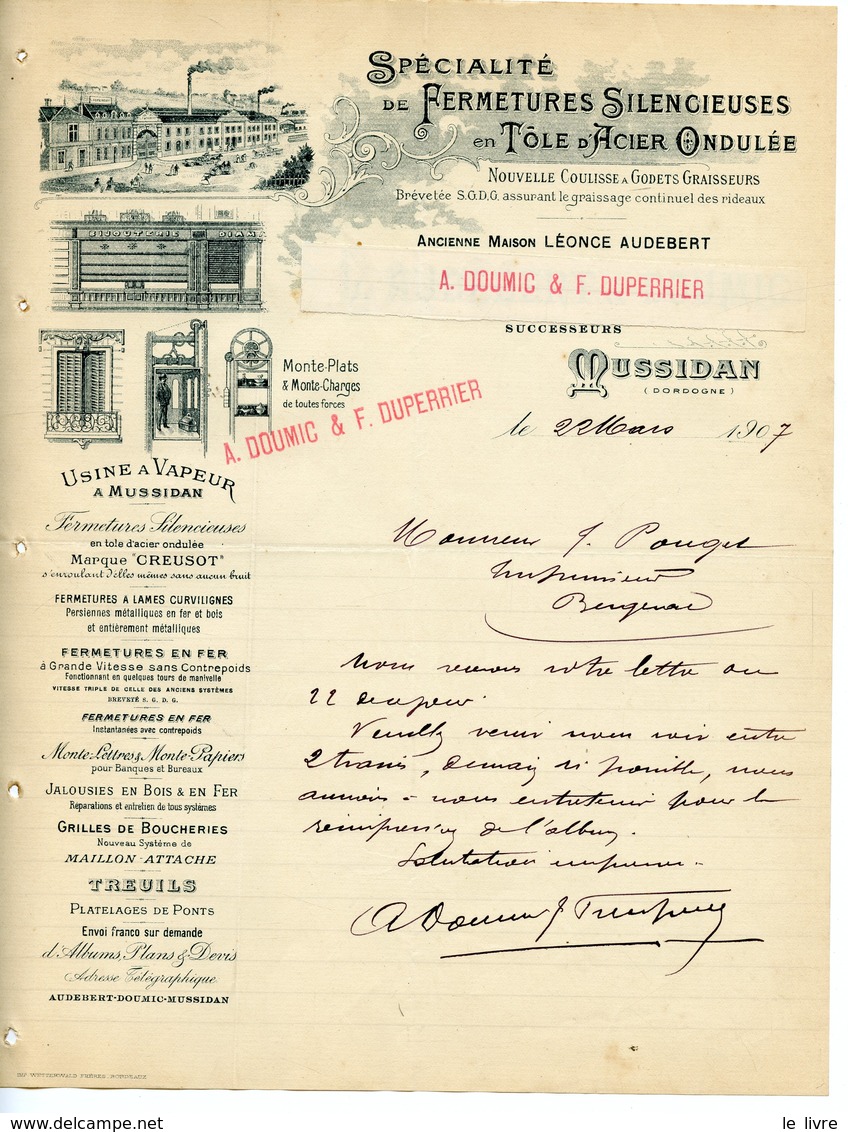 SPÉCIALITÉ
DE FERMETURES SILENCIEUSES
en TÔLE D'ACIER ONDULÉE
NOUVELLE COULISSE A GODETS GRAISSEURS
Brévetée S.G.D.G. assurant le graissage continuel des rideaux
ANCIENNE MAISON LÉONCE AUDEBERT
A. DOUMIC & F. DUPERRIER
SUCCESSEURS
MUSSIDAN
(DORDOGNE)
BIJOUTERIE DIAM
Monte-Plats
& Monte-Charges
de toutes forces
A. DOUMIC & F. DUPERRIER
le 22 Mars 1907
USINE A VAPEUR
A MUSSIDAN
Fermetures Silencieuses
en tole d'acier ondulée
MARQUE "CREUSOT"
s'enroulant d'elles mêmes sans aucun bruit
FERMETURES A LAMES CURVILIGNES
Persiennes métalliques en fer et bois
et entièrement métalliques
FERMETURES EN FER
à Grande Vitesse sans Contrepoids
Fonctionnant en quelques tours de manivelle
VITESSE TRIPLE DE CELLE DES ANCIENS SYSTÈMES
BREVETÉ S. G. D. G.
FERMETURES EN FER
Instantanées avec contrepoids
Monte-Lettres & Monte-Papiers
pour Banques et Bureaux
JALOUSIES EN BOIS & EN FER
Réparations et entretien de tous systèmes
GRILLES DE BOUCHERIES
Nouveau Système de
MAILLON-ATTACHE
TREUILS
PLATELAGES DE PONTS
Envoi franco sur demande
d'Albums, Plans & Devis
Adresse Télégraphique
AUDEBERT-DOUMIC-MUSSIDAN
Monsieur J. Pouget
Imprimeur
Bergerac
Nous recevons votre lettre du
22
Veuillez venir nous voir entre
2 trains, demain si possible, nous
nous entretenir pour la
réimpression de l'album.
Salutations
IMP. WETTERWALD FRÈRES. BORDEAUX
le livre